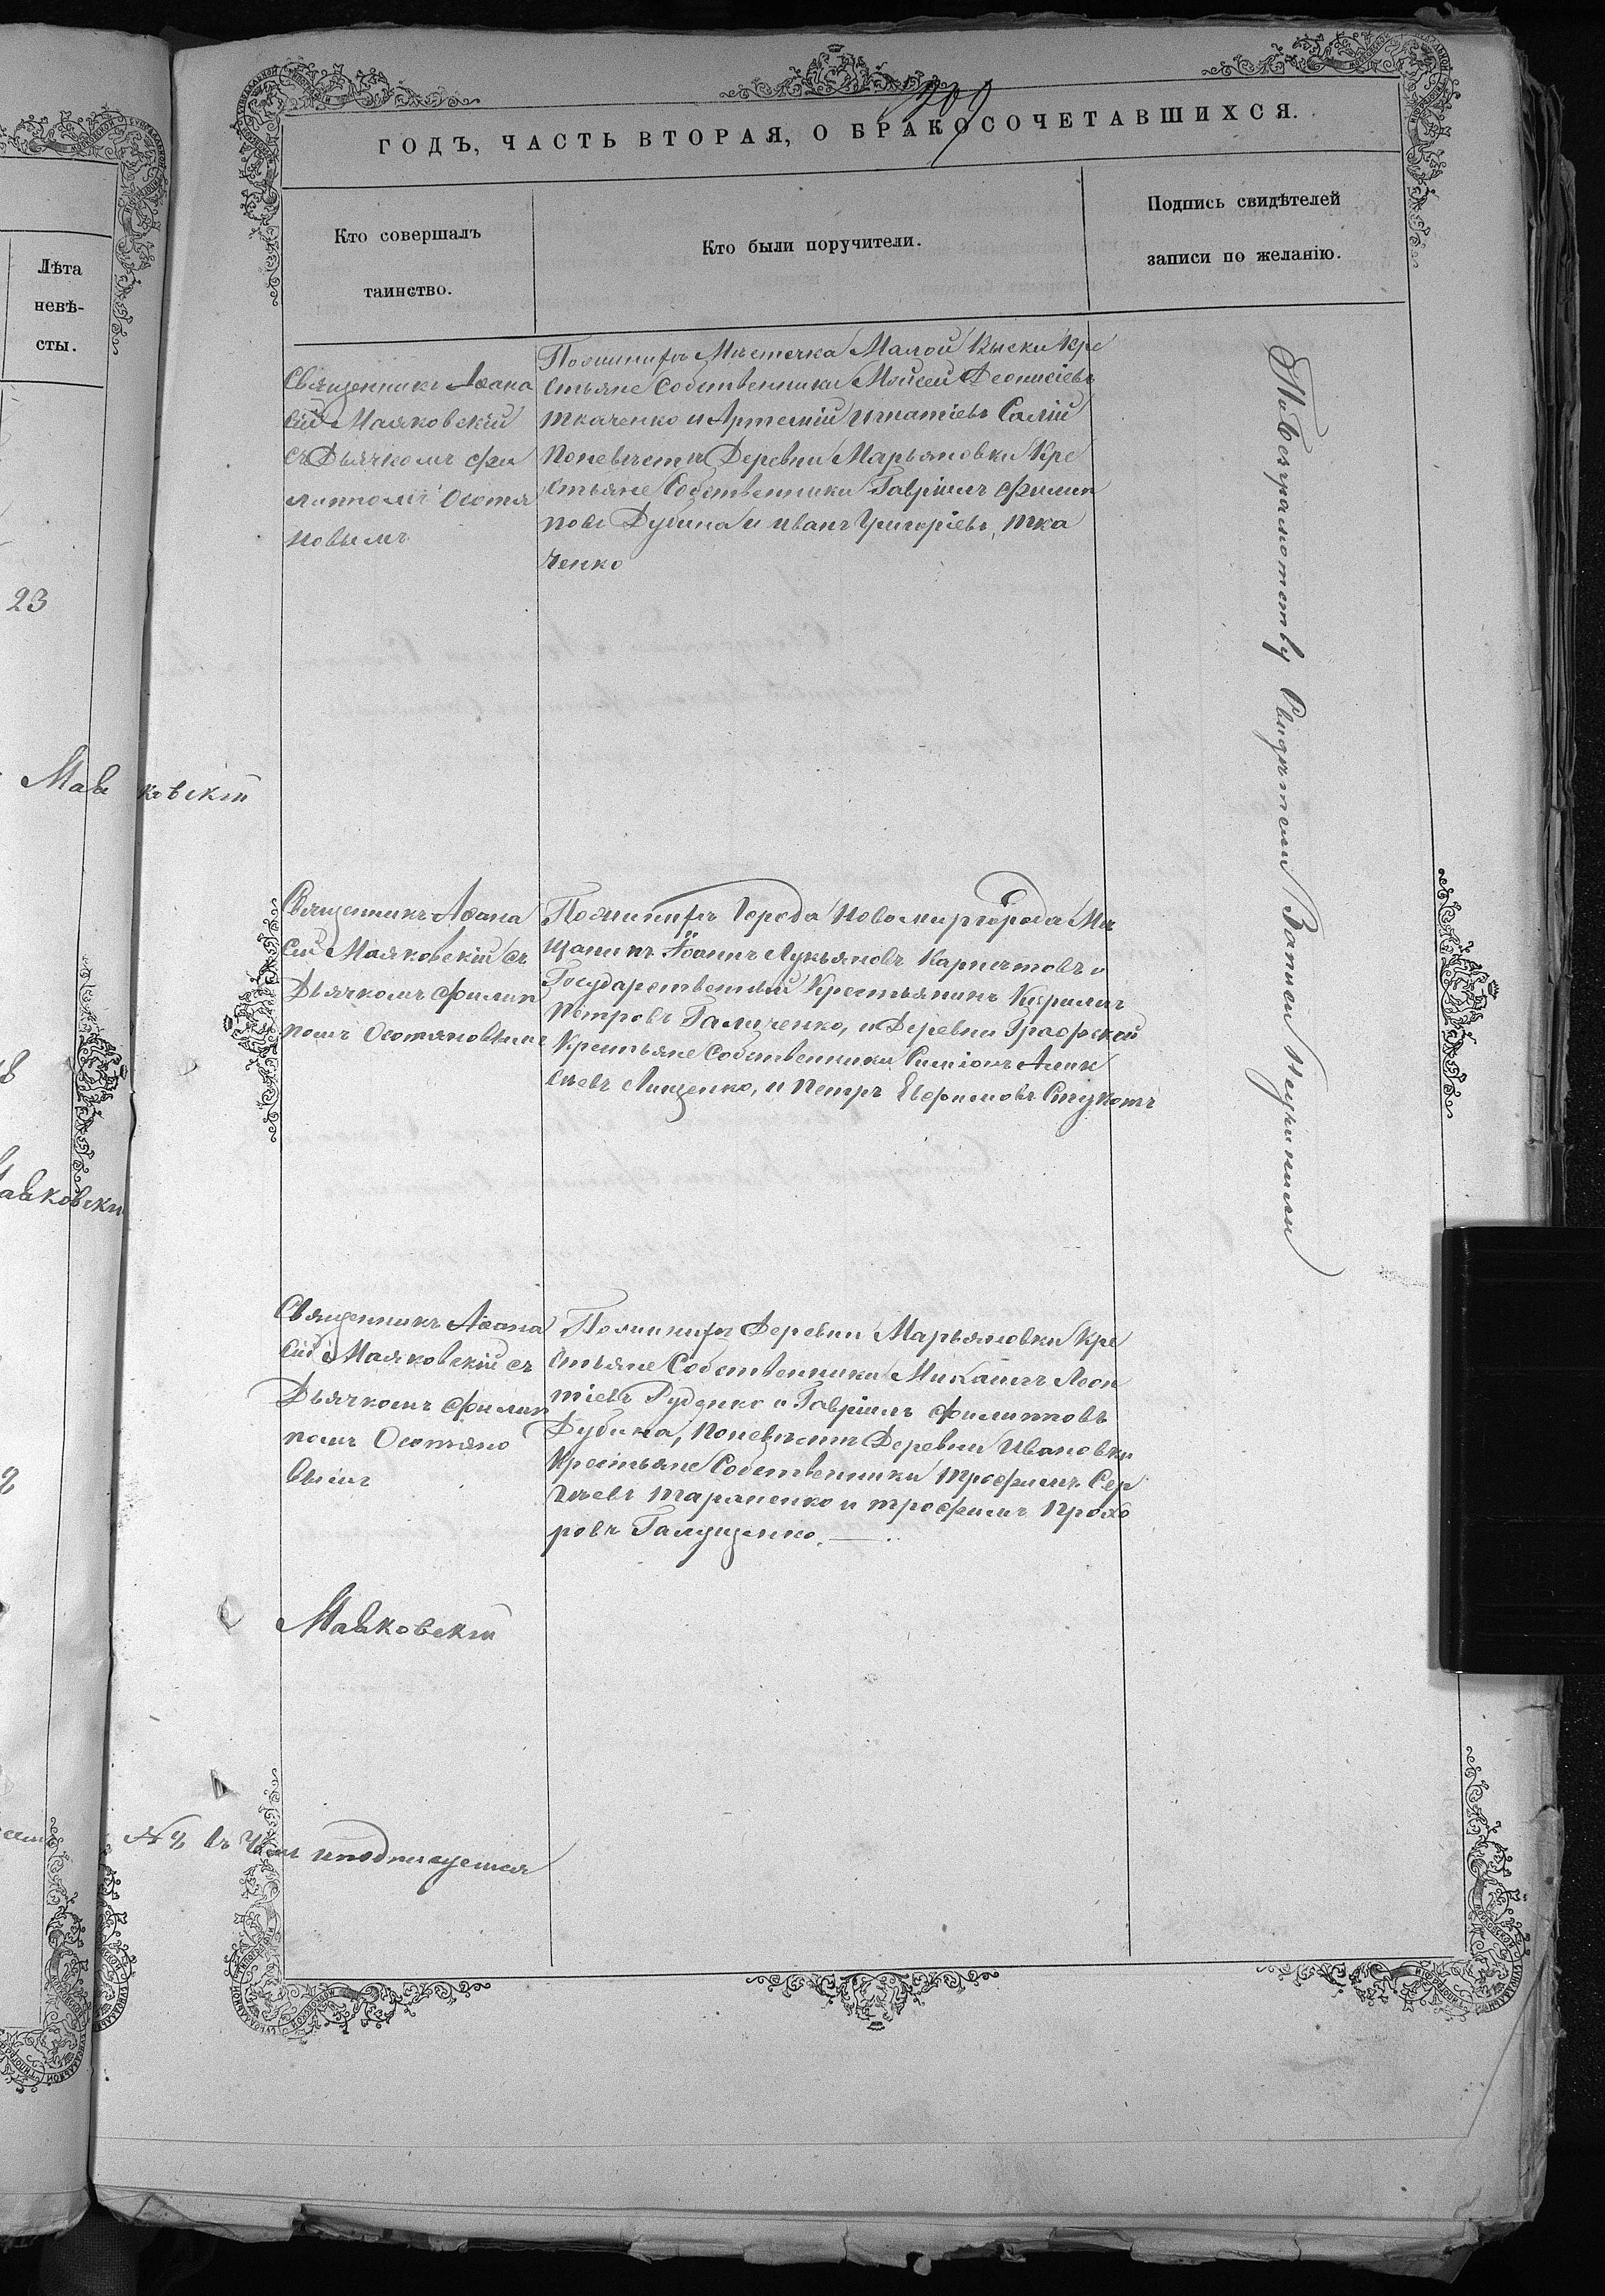 209
ГОДЪ, ЧАСТЬ ВТОРАЯ, О БРАКОСОЧЕТАВШИХСЯ.
Лѣта
невѣ-
сты.
Кто совершалъ
таинство.
Кто были поручители.
Подпись свидѣтелей
записи по желанію.
23
Священникъ Аѳана
сій Маяковскій
съ Дьячкомъ Фи
липпомъ Осотя
новымъ
По женихѣ Мѣстечка Малой Выски Кре
стьяне Собственники Мойсей Деонисіевъ
Ткаченко и Артемій Игнатіевъ Салій
По невѣстѣ Деревни Марьяновки Кре
стьяне Собственники Гавріилъ Филип
повъ Дубина и Иванъ Григоріевъ Тка
ченко
Маяковскій
Священникъ Аѳана
сій Маяковскій съ
Дьячкомъ Филип
помъ Осотяновымъ
По женихѣ Города Новомиргорода Мѣ
щанинъ Іоаннъ Лукьяновъ Карпетовъ и
Государственный Крестьянинъ Кирилъ
Петровъ Галиченко, и Деревни Графской
Крестьяне Собственники Симіонъ Алек
сѣевъ Лищенко, и Петръ Евфимовъ
Маяковскій
Священникъ Аѳана
сій Маяковскій съ
Дьячкомъ Филип
помъ Осотяно
вымъ
По женихѣ Деревни Марьяновки Кре
стьяне Собственники Михаилъ Леон
тіевъ Руденко и Гавріилъ Филипповъ
Дубина, По невѣстѣ Деревни Ивановки
Крестьяне Собственники Трофимъ Сер
гѣевъ Тараненко и Трофимъ Прохо
ровъ Галущенко.
Маяковскій
въ чемъ и подписуемся
По безграмотству Свидѣтели Записи Неучинили